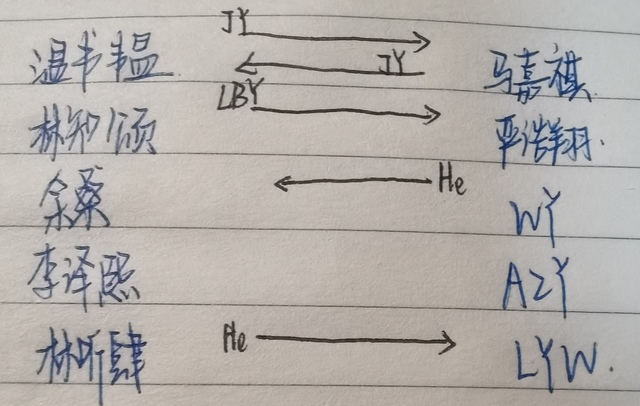 JY
温书韫 JY 马嘉祺
LBY
林知颂 严浩翔.
余桑 He WY
李译熙 AZY
林昕肆 He LYW.